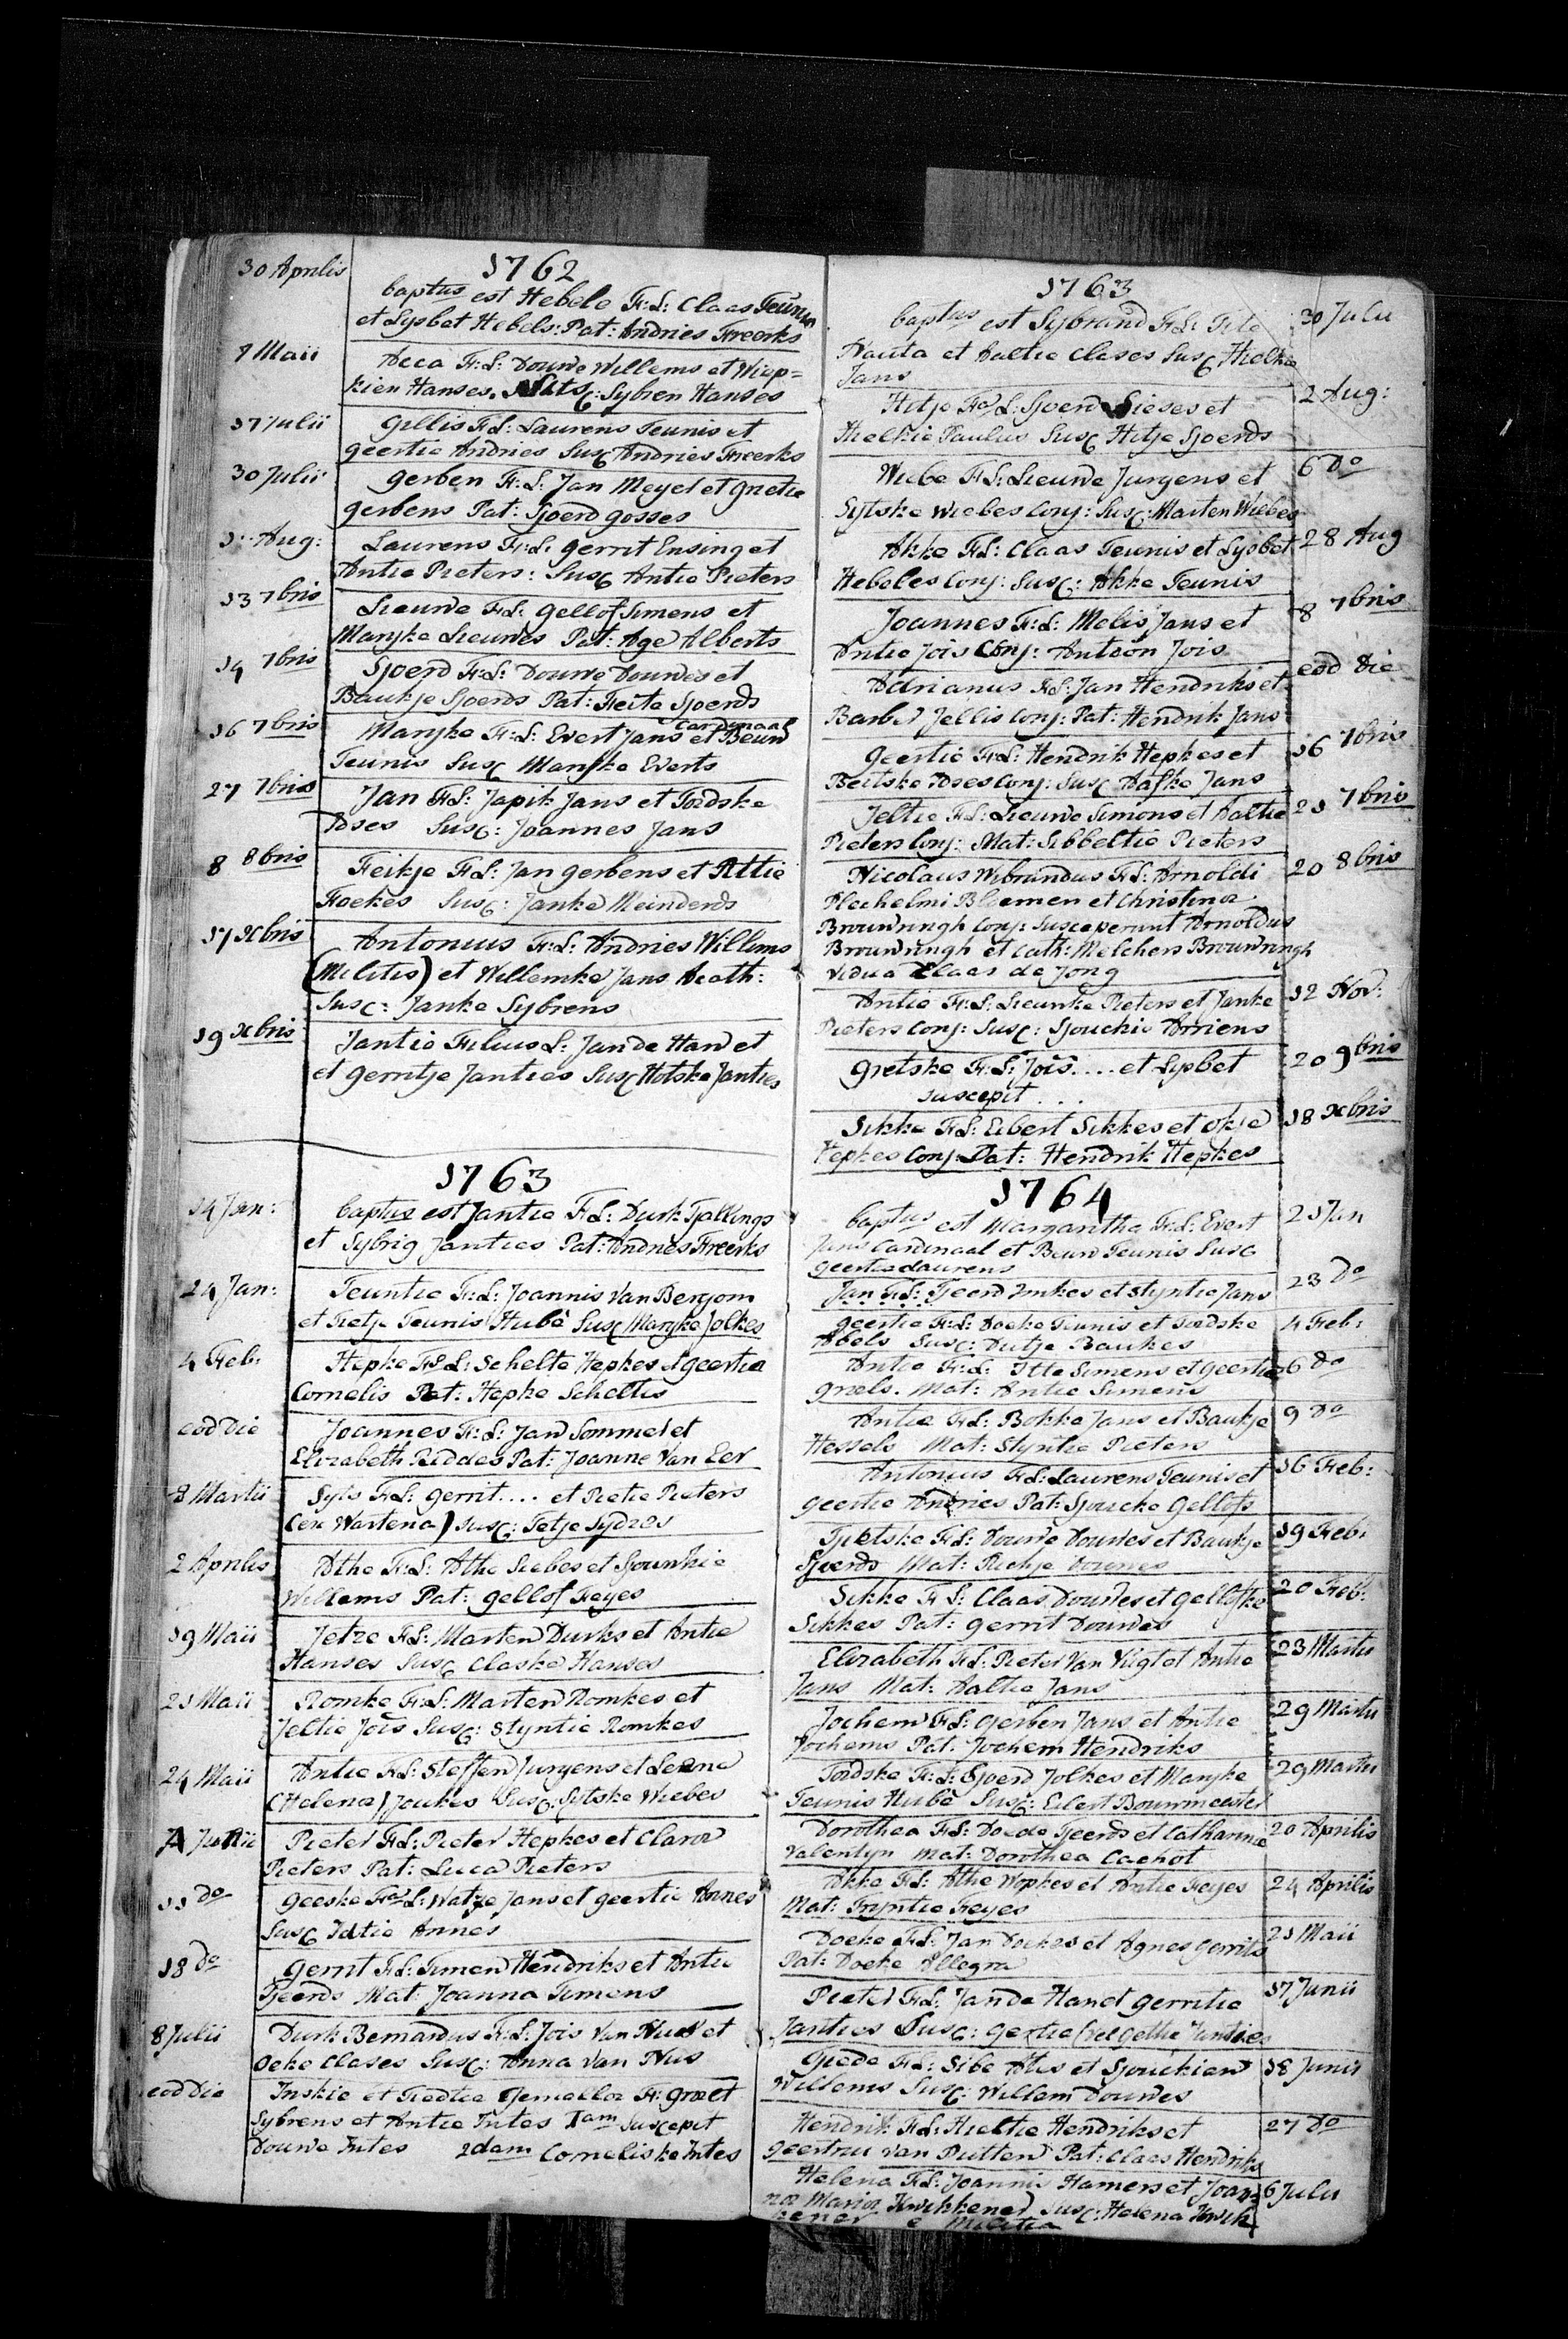 1762
30 Aprilis baptus est Hebele F: L: Claas Teunis
et Lysbet Hebels: Pat: Andries Freerks
9 Maii Acca F: L: Douwe Willems et Wiep=
kien Hanses. Susc: Sybren Hanses
17 Julii Gillis F L: Laurens Teunis et
geertie Andries Susc Andries Freerks
30 Julii gerben F: L: Jan Meyel et grietie
gerbens Pat: Sjoerd gosses
Aug: Laurens F: L: gerrit Ensing et
Antie Pieters: Susc Antie Pieters
13 7bris Lieuwe F: L: gellof Simens et
Maryke Lieuwes Pat: Age Alberts
14 7bris Sjoerd F: L: Douwe Douwes et
Baukje Sjoerds Pat: Feite Sjoerds
16 7bris Maryke F: L: Evert Jans Cardinaal et Beuw
Teunis Susc Maryke Everts
27 7bris Jan F L: Japik Jans et Todske
Ioses Susc: Joannes Jans
8 8bris Feikje F L: Jan gerbens et Attie
Foekes Susc: Janke Meinderds
17 Xbris Antonius F: L: Andries Willems
(Militis) et Willemke Jans Acath:
Susc: Janke Sybrens
19 Xbris Jantie Filius L: Jan de Haw et
et gerritje Janties Susc Hotske Janties
1763
14 Jan: baptus est Jantie F L: Durk Tjallings
et Sybrig Janties Pat: Andries Freerks
24 Jan: Teuntie F: L: Joannis Van Bergom
et Tietje Teunis Hubé Susc Maryke Jolkes
4 Feb: Hepke F L: Schelte Hepkes et geertie
Cornelis Pat: Hepke Scheltes
eod die Joannes F: L: Jan Sommel et
Elizabeth Riddes Pat: Joanne Van Eer
8 Martii Syts F L: gerrit .... et Pietie Pieters
(ex Wartena) Susc: Tetje Sydzes
2 Aprilis Athe F: L: Athe Siebes et Sjoukie
Willems Pat: gellof Feyes
19 Maii Jetze F L: Marten Durks et Antie
Hanses Susc Claske Hanses
21 Maii Romke F: L: Marten Romkes et
Jeltie Jois Susc: Styntie Romkes
24 Maii Antie F L: Steffen Jurgens et Leena
(Helena) Joukes Susc: Sytske Wiebes
Junii Pieter F L: Pieter Hepkes et Clara
Pieters Pat: Luca Pieters
11 do Geeske Fa L: Watze Jans et geertie Annes
Susc Idtie Annes
18 do Gerrit F L: Simen Hendriks et Antie
Tjeerds Mat: Joanna Simens
8 Julii Durk Bernardus F: L: Jois Van Nus et
Oeke Clases Susc: Anna Van Nus
eod die Inskie et Fiedtie Gemellæ F: groet
Sybrens et Antie Intes 1am Suscepit
Douwe Intes 2dam Corneliske Intes
1763
baptus est Sybrand F L: Fite 30 Julii
Nauta et Aaltie Clases Susc Hielke
Jans
Hitje Fa L: Sjoerd Sieses et 2 Aug:
Hielkie Paulus Susc Hitje Sjoerds
Wiebe F L: Lieuwe Jurgens et 6 do
Sytske Wiebes Conj: Susc: Marten Wiebes
Akke F L: Claas Teunis et Lysbet 28 Aug
Hebeles Conj: Susc: Akke Teunis
Joannes F: L: Melis Jans et 8 7bris
Antie Jois Conj: Antoon Jois
Adrianus F L: Jan Hendriks et eod die
Barber Jellis Conj: Pat: Hendrik Jans
Geertie F L: Hendrik Hepkes et 16 7bris
Beitske Ioses Conj: Susc Aafke Jans
Jeltie F L: Lieuwe Simons et Aaltie 21 7bris
Pieters Conj: Mat: Sibbeltie Pieters
Nicolaus Wibrandus F L: Arnoldi 20 8bris
Plechelmi Bloemen et Christinæ
Brouwringh Conj: Susceperunt Arnoldus
Brouwringh et Cath: Melchers Brouwringh
Vidua Claas de Jong
Antie F: L: Lieuwke Pieters et Janke 12 Nov:
Pieters Conj: Susc: Sjouckie Arriens
Gretske F: L: Jois .... et Lysbet 20 9bris
suscepit ...
Sikke F L: Eibert Sikkes et Okie 18 Xbris
Hepkes Conj: Pat: Hendrik Hepkes
1764
baptus est Margaritha F: L: Evert 21 Jan
Jans Cardinaal et Beuw Teunis Susc
geertie Laurens
Jan F L: Tjeerd Imkes et Styntie Jans 23 do
geertie F L: Doeke Teunis et Todske 4 Feb:
Abels Susc: Dutje Baukes
Antie F: L: Itte Simens et Geertie 6 do
griels. Mat: Antie Simens
Antie F L: Bokke Jans et Baukje 9 do
Hessels Mat: Styntie Pieters
Antonius F L: Laurens Teunis et 16 Feb:
geertie Andries Pat: Sjoucke Gellofs
Tjietske F L: Douwe Douwes et Baukje 19 Feb:
Sjoerds Mat: Rickje Douwes
Sikke F L: Claas Douwes et Gellofke 20 Feb:
Sikkes Pat: gerrit Douwes
Elizabeth F L: Pieter Van Vligt et Antie 23 Martii
Jans Mat: Aaltie Jans
Jochem F L: Gerben Jans et Antie 29 Martii
Jochems Pat: Jochem Hendriks
Todske F: L: Sjoerd Jolkes et Maryke 29 Martii
Teunis Hubé Susc: Eilert Bouwmeester
Dorothea F L: Doede Tjeerds et Catharina 20 Aprilis
Valentyn Mat: Dorothea Cachot
Akke F L: Athe Wopkes et Antie Feyes 24 Aprilis
Mat: Tryntie Feyes
Doeke F L: Jan Doekes et Agnes Gerrits 21 Maii
Pat: Doeke Allegra
Pieter F L: Jan de Haw et gerritie 17 Junii
Janties Susc: gertie (vel Geltie Janties
Gjede F L: Sibe Ates et Sjouckien 18 Junii
Willems Susc: Willem Douwes
Hendrik F L: Hieltie Hendriks et 27 do
geertrui van Putten Pat: Claas Hendriks
Helena F L: Joannis Hamers et Joan= 6 Julii
næ Mariæ Kwikkener Susc: Helena Kwik
kener e Militia